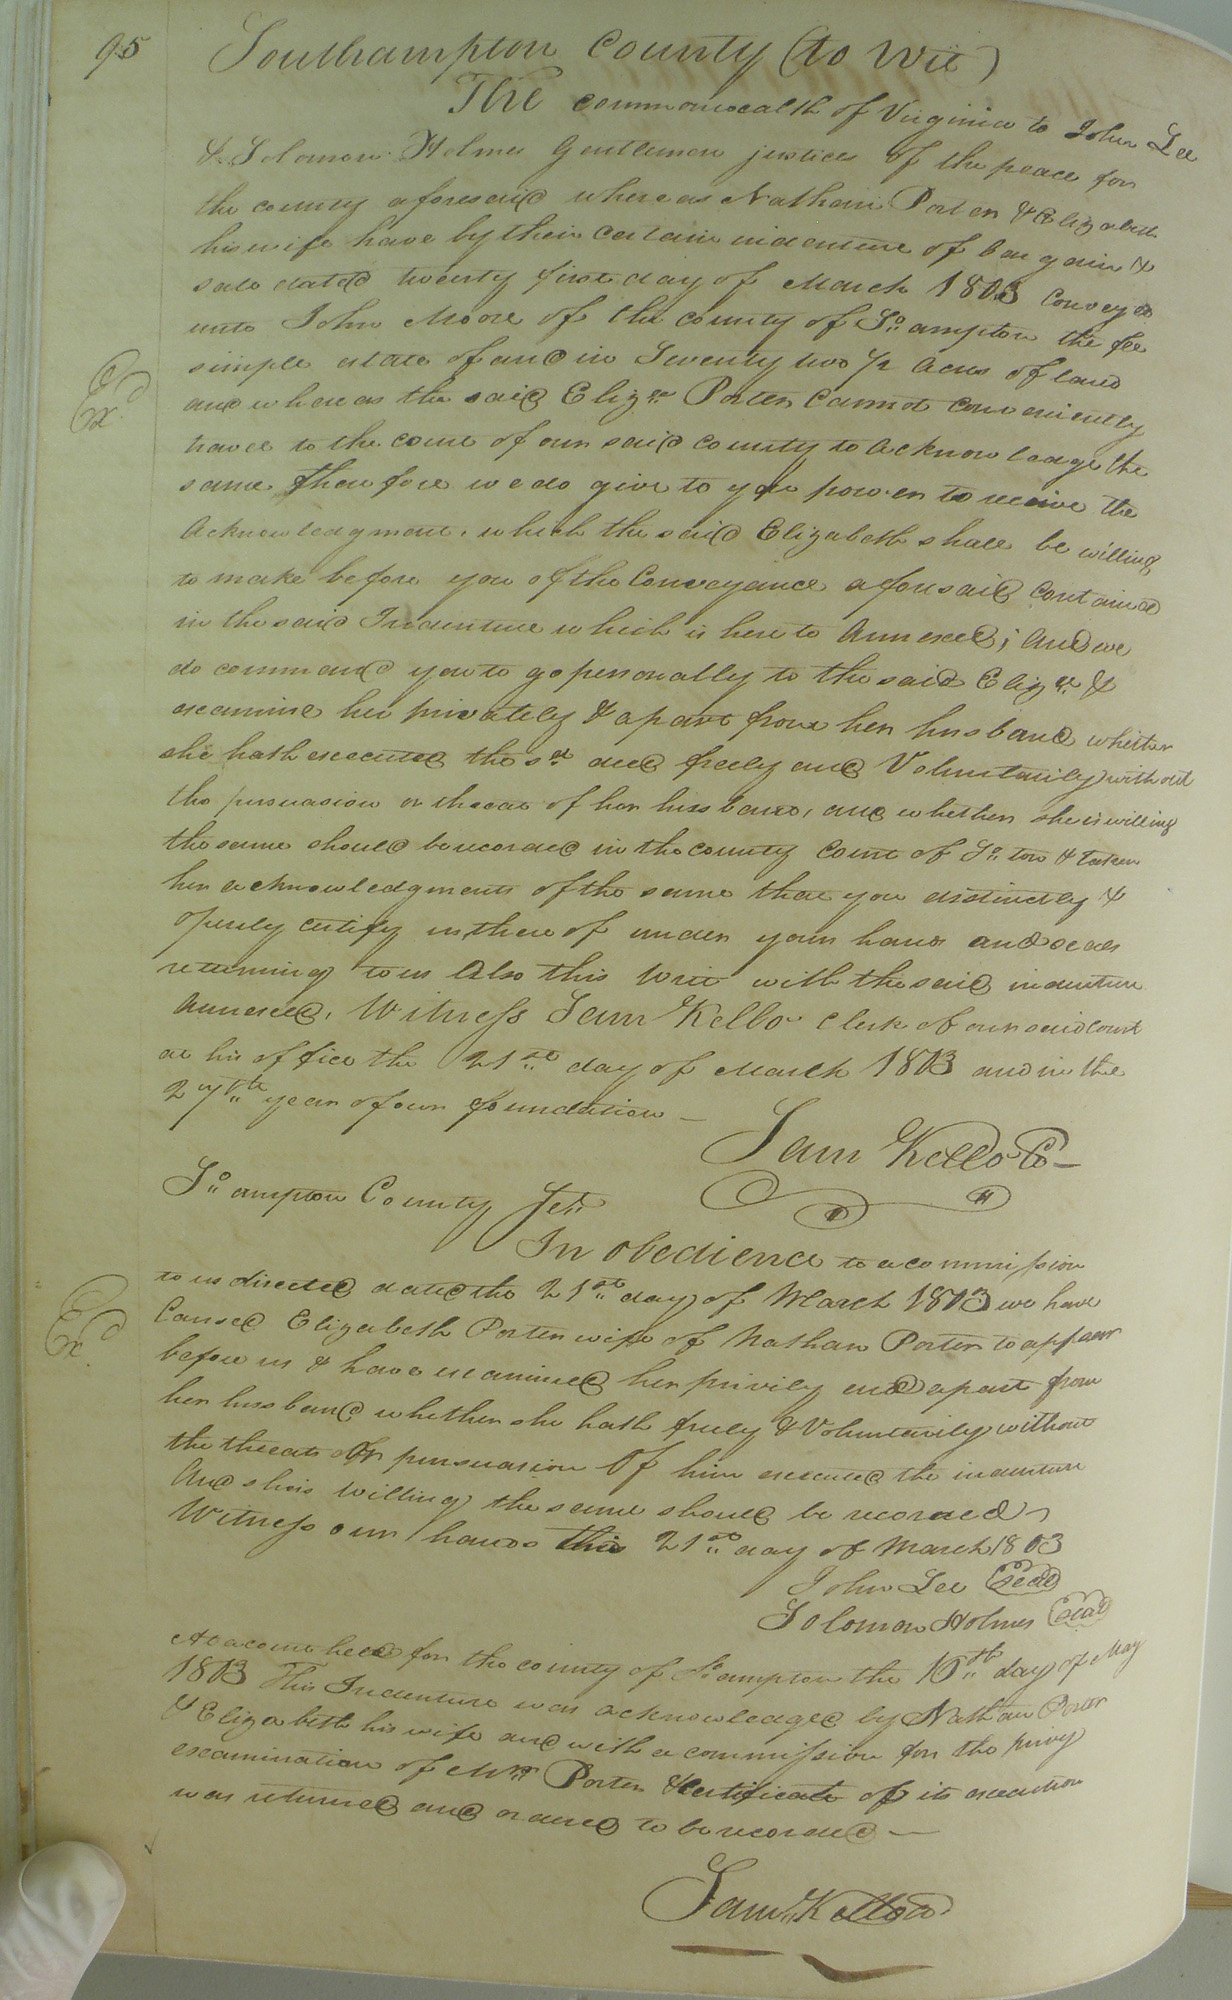 95
Southampton County (to Wit)
The commonwealth of Virginia to John Lee
& Solomon Holmes Gentlemen justices of the peace for
the county aforesaid whereas Nathan Porter & Elizabeth
his wife have by their certain indenture of bargain &
sale dated twenty first day of March 1803 Conveyd
unto John Moore of the county of So:ampton the fee
simple estate of and in Seventy two 1/2 Acres of land
Ex.d
and whereas the said Eliza Porter Cannot Conveniently
travel to the court of our said County to Acknowledge the
same therefore we do give to you power to receive the
Acknowledgment which the said Elizabeth shall be willing
to make before you of the Conveyance aforesaid Contained
in the said Indenture which is here to Annexed; And we
do command you to go personally to the said Eliza &
examine her privately & apart from her husband whether
she hath executed the sd deed freely and Voluntarily without
the persuasion or threat of her husband, and whether she is willing
the same should be recorded in the County Court of So:ton &
her acknowledgments of the same that you distinctly &
openly certify us thereof under your hand and seals
returning to us Also this Writ with the said indenture
Annexed. Witness Sam Kello Clerk of our said Court
at his office the 21st day of March 1803 and in the
27th year of our foundation
Sam Kello
So:ampton County Sct:
In obedience to a commission
to us directed dated the 21st day of March 1803 we have
Ex.d
Caused Elizabeth Porter wife of Nathan Porter to appear
before us & have examined her privily and apart from
her husband whether she hath freely & Voluntarily without
the threats Or persuasion Of him executed the indenture
And she is Willing the same should be recorded
Witness our hands this 21st day of March 1803
John Lee (seal)
Solomon Holmes (seal)
At a court held for the county of So:ampton the 16th day of May
1803 This Indenture was acknowledged by Nathan Porter
& Elizabeth his wife and with a commission for the privy
examination of Mrs Porter & certificate of its execution
was returned and ordered to be recorded
Sam: Kello